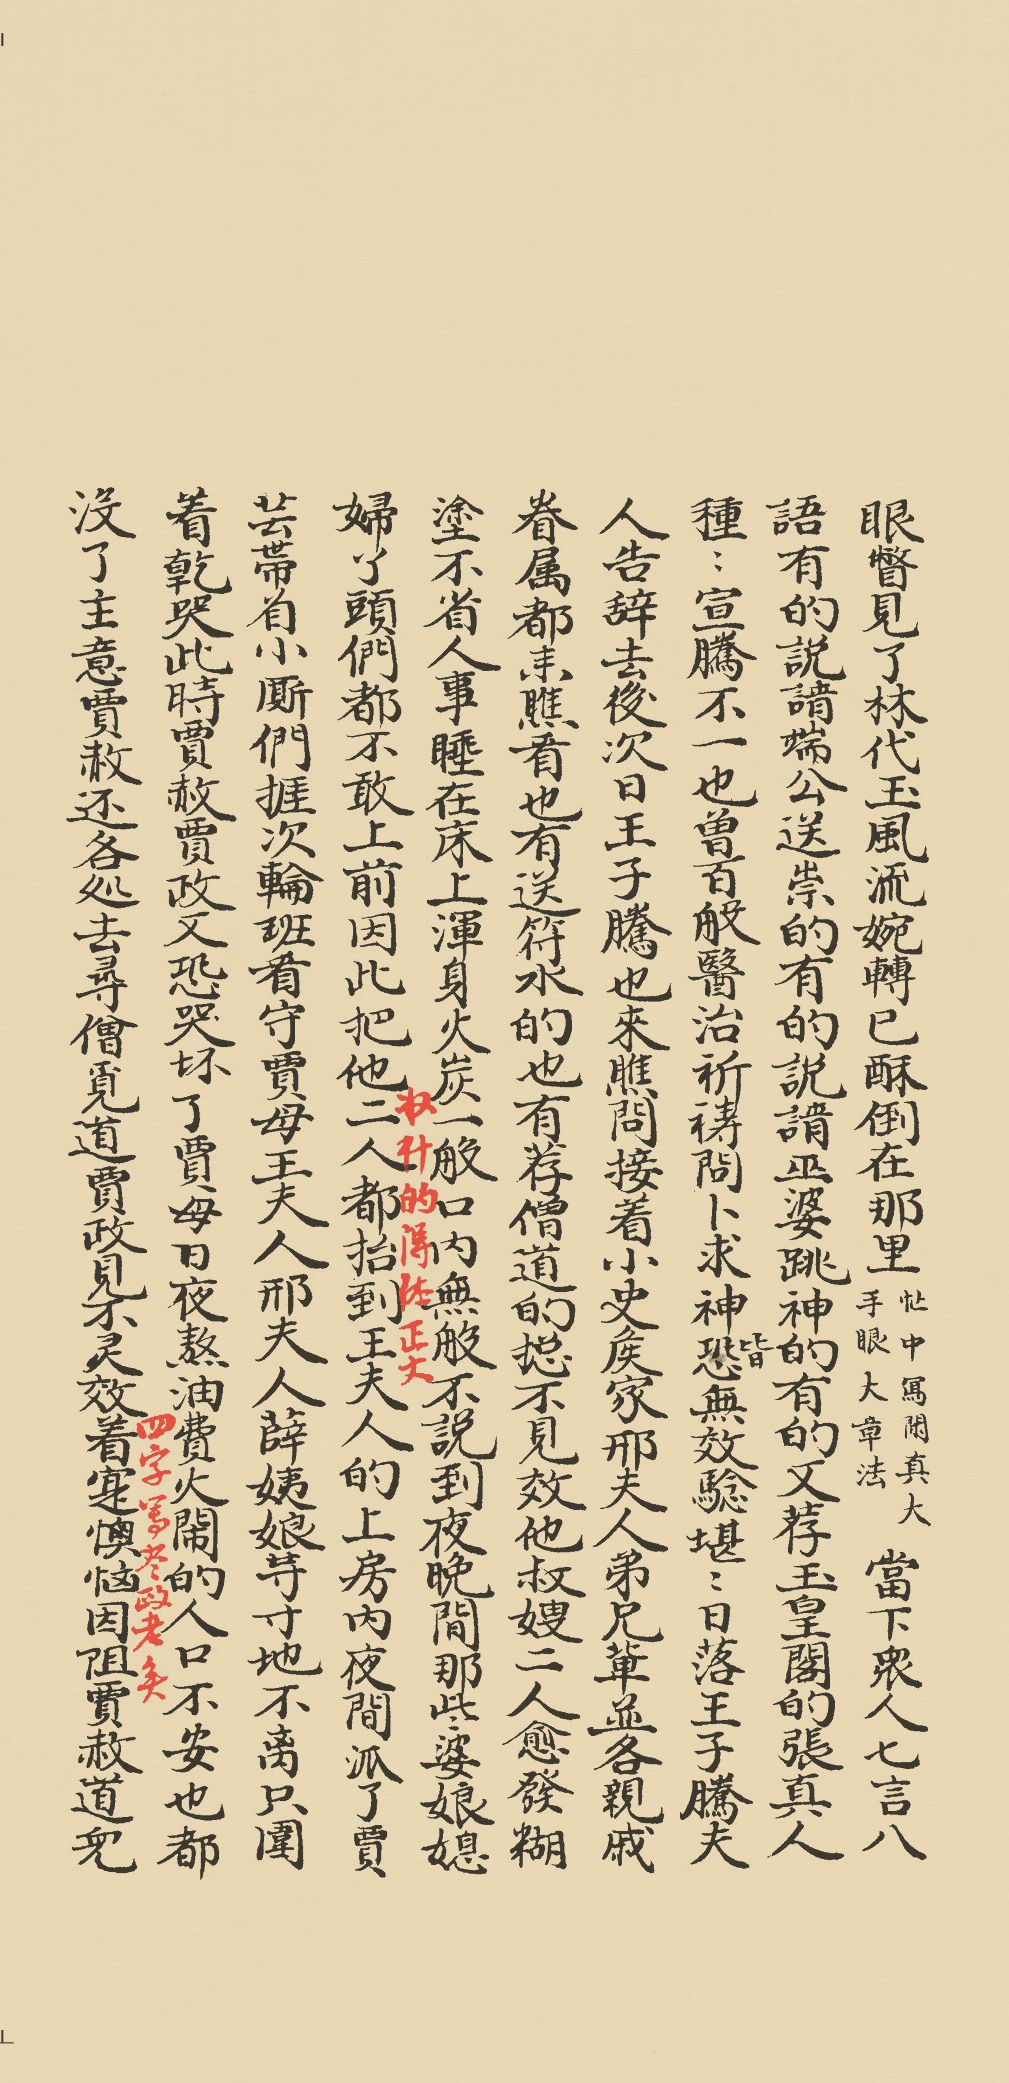 眼瞥見了林代玉風流婉轉已酥倒在那里忙中寫閒真大手眼大章法當下衆人七言八
語有的説請端公送祟的有的説請巫婆跳神的有的又荐玉皇閣的張真人
種﹕宣騰不一也曾百般醫治祈禱問卜求神恐皆無效驗堪﹕日落王子騰夫
人告辞去後次日王子騰也來瞧問接着小史矦家邢夫人弟兄軰並各親戚
眷属都来瞧看也有送符水的也有荐僧道的揔不見效他叔嫂二人愈發糊
塗不省人事睡在床上渾身火炭一般口内無般不説到夜晚間那些婆娘媳
婦丫頭們都不敢上前因此把他二人都抬到王夫人的上房内夜間派了賈
收什的得体正大
芸带着小厮們捱次輪班看守賈母王夫人邢夫人薛姨娘等寸地不离只圍
着乾哭此時賈赦賈政又恐哭坏了賈母日夜熬油費火閙的人口不安也都
四字写尽政老矣
没了主意賈赦还各処去尋僧覓道賈政見不灵效着寔懊恼因阻賈赦道兒